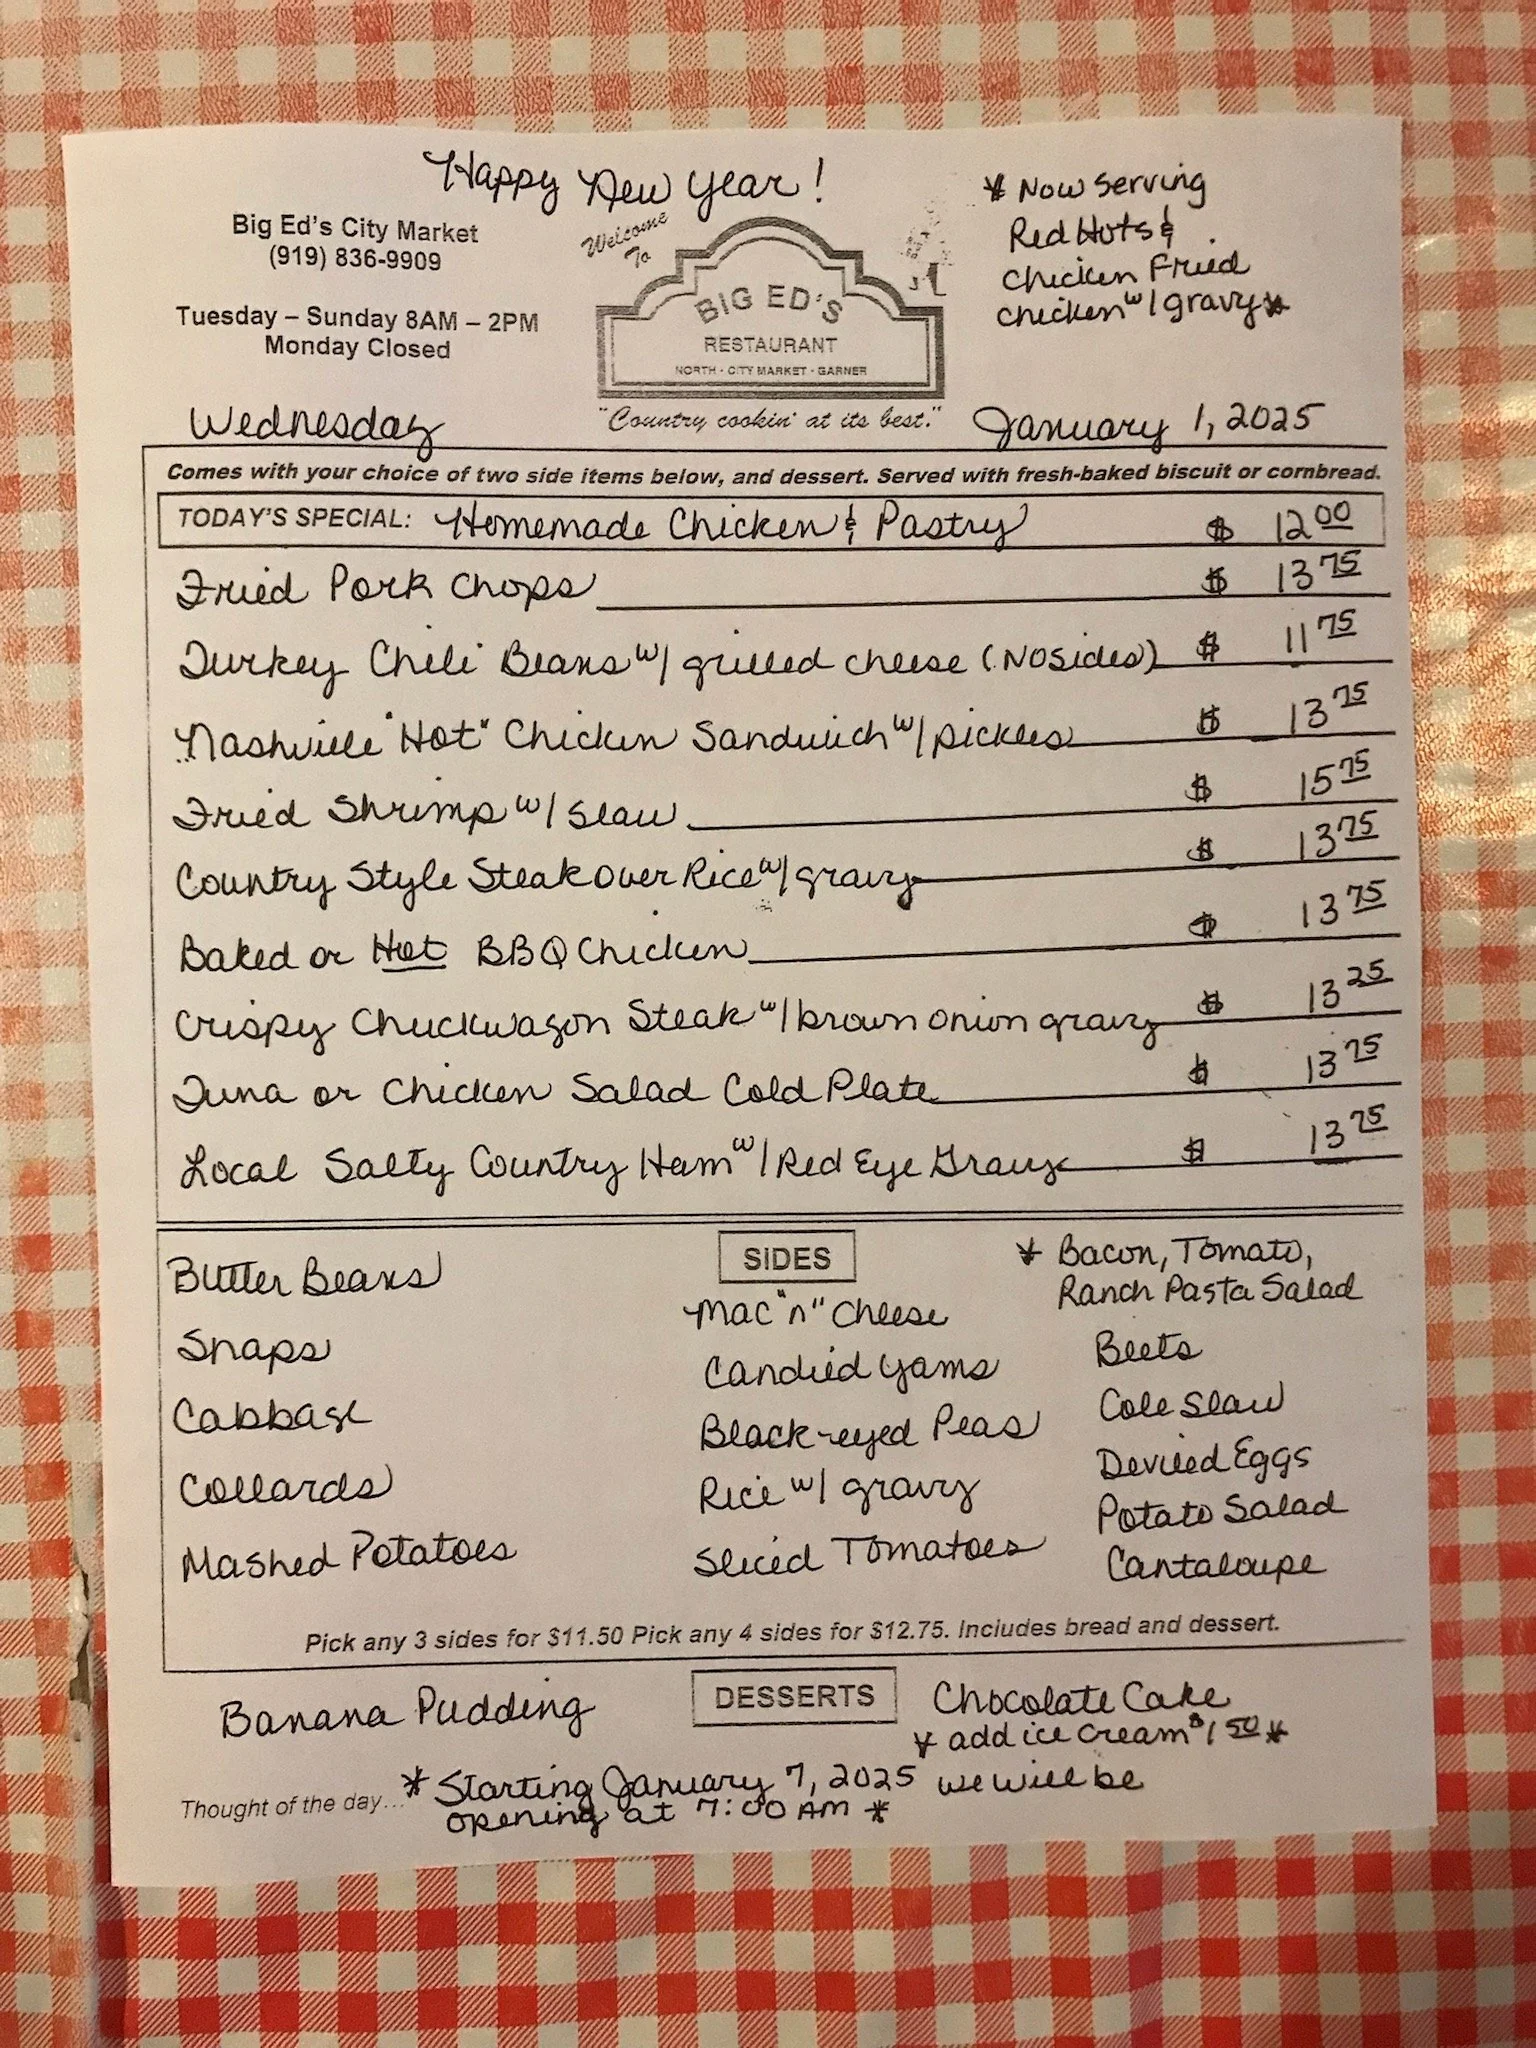 Happy New Year!
Big Ed's City Market
(919) 836-9909
Tuesday – Sunday 8AM – 2PM
Monday Closed
Welcome
To
BIG ED'S
RESTAURANT
NORTH · CITY MARKET · GARNER
"Country cookin' at its best."
* Now serving
Red Hots &
Chicken Fried
Chicken w/ gravy *
Wednesday
January 1, 2025
Comes with your choice of two side items below, and dessert. Served with fresh-baked biscuit or cornbread.
TODAY'S SPECIAL: Homemade Chicken & Pastry $ 12 00
Fried Pork Chops $ 13 75
Turkey Chili Beans w/ grilled cheese (No sides) $ 11 75
Nashville "Hot" Chicken Sandwich w/ pickles $ 13 75
Fried Shrimp w/ slaw $ 15 75
Country Style Steak over Rice w/ gravy $ 13 75
Baked or Hot BBQ Chicken $ 13 75
Crispy Chuckwagon Steak w/ brown onion gravy $ 13 25
Tuna or Chicken Salad Cold Plate $ 13 75
Local Salty Country Ham w/ Red Eye Gravy $ 13 75
SIDES
Butter Beans
Snaps
Cabbage
Collards
Mashed Potatoes
Mac "n" Cheese
Candied Yams
Black-eyed Peas
Rice w/ gravy
Sliced Tomatoes
* Bacon, Tomato,
Ranch Pasta Salad
Beets
Cole Slaw
Deviled Eggs
Potato Salad
Cantaloupe
Pick any 3 sides for $11.50 Pick any 4 sides for $12.75. Includes bread and dessert.
DESSERTS
Banana Pudding
Chocolate Cake
* add ice cream $1 50 *
Thought of the day... * Starting January 7, 2025 we will be
opening at 7:00 AM *